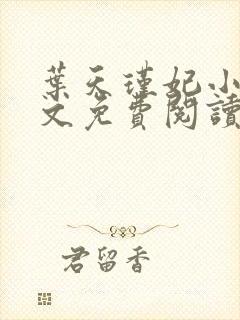 葉天瑾妃小
文免費閱讀
君留香